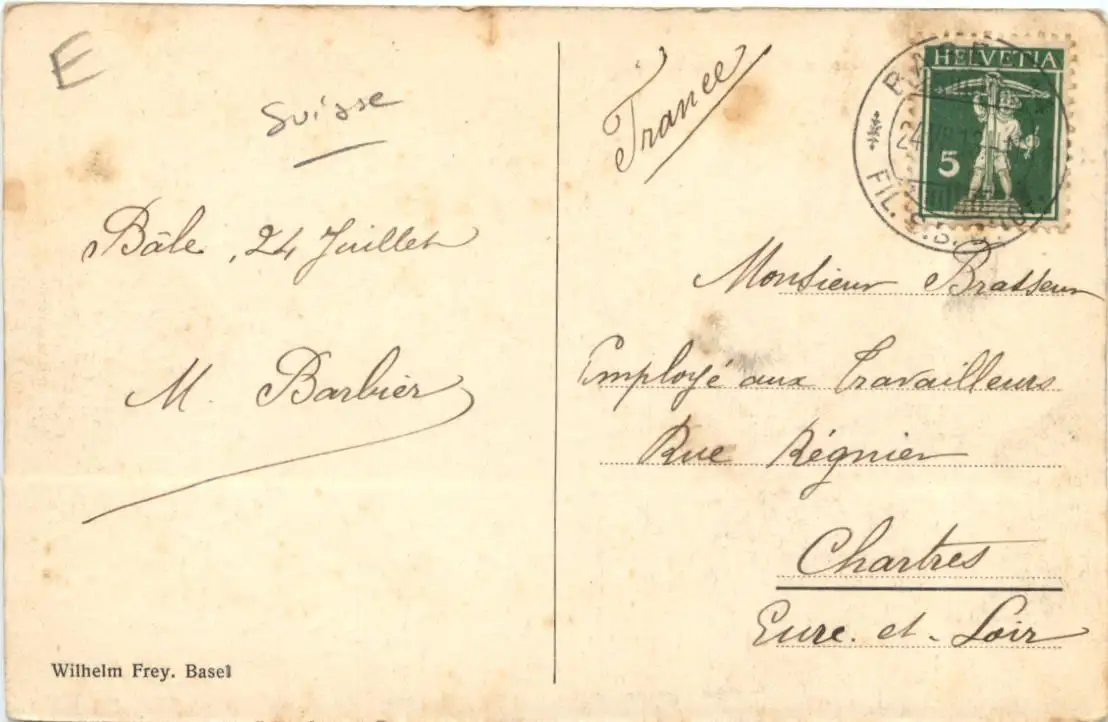 E
Suisse
Bâle, 24 Juillet
M. Barbier
Wilhelm Frey. Basel
France
HELVETIA
5
BASEL
FIL. S.B.B.
Monsieur Brasseur
Employé aux Travailleurs
Rue Régnier
Chartres
Eure-et-Loir